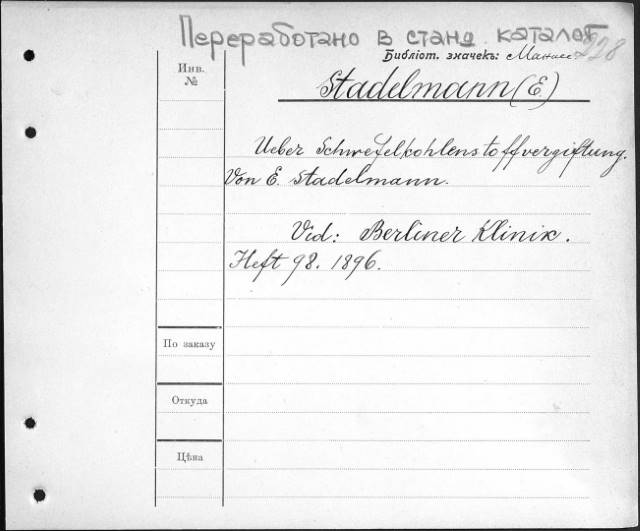 Переработано в станд. каталог
Библіот. значекъ:
228
Инв.
№
Stadelmann (E.)
Ueber Schwefelkohlenstoffvergiftung.
Von E. Stadelmann.
Vid: Berliner Klinik.
Heft 98. 1896.
По заказу
Откуда
Цѣна